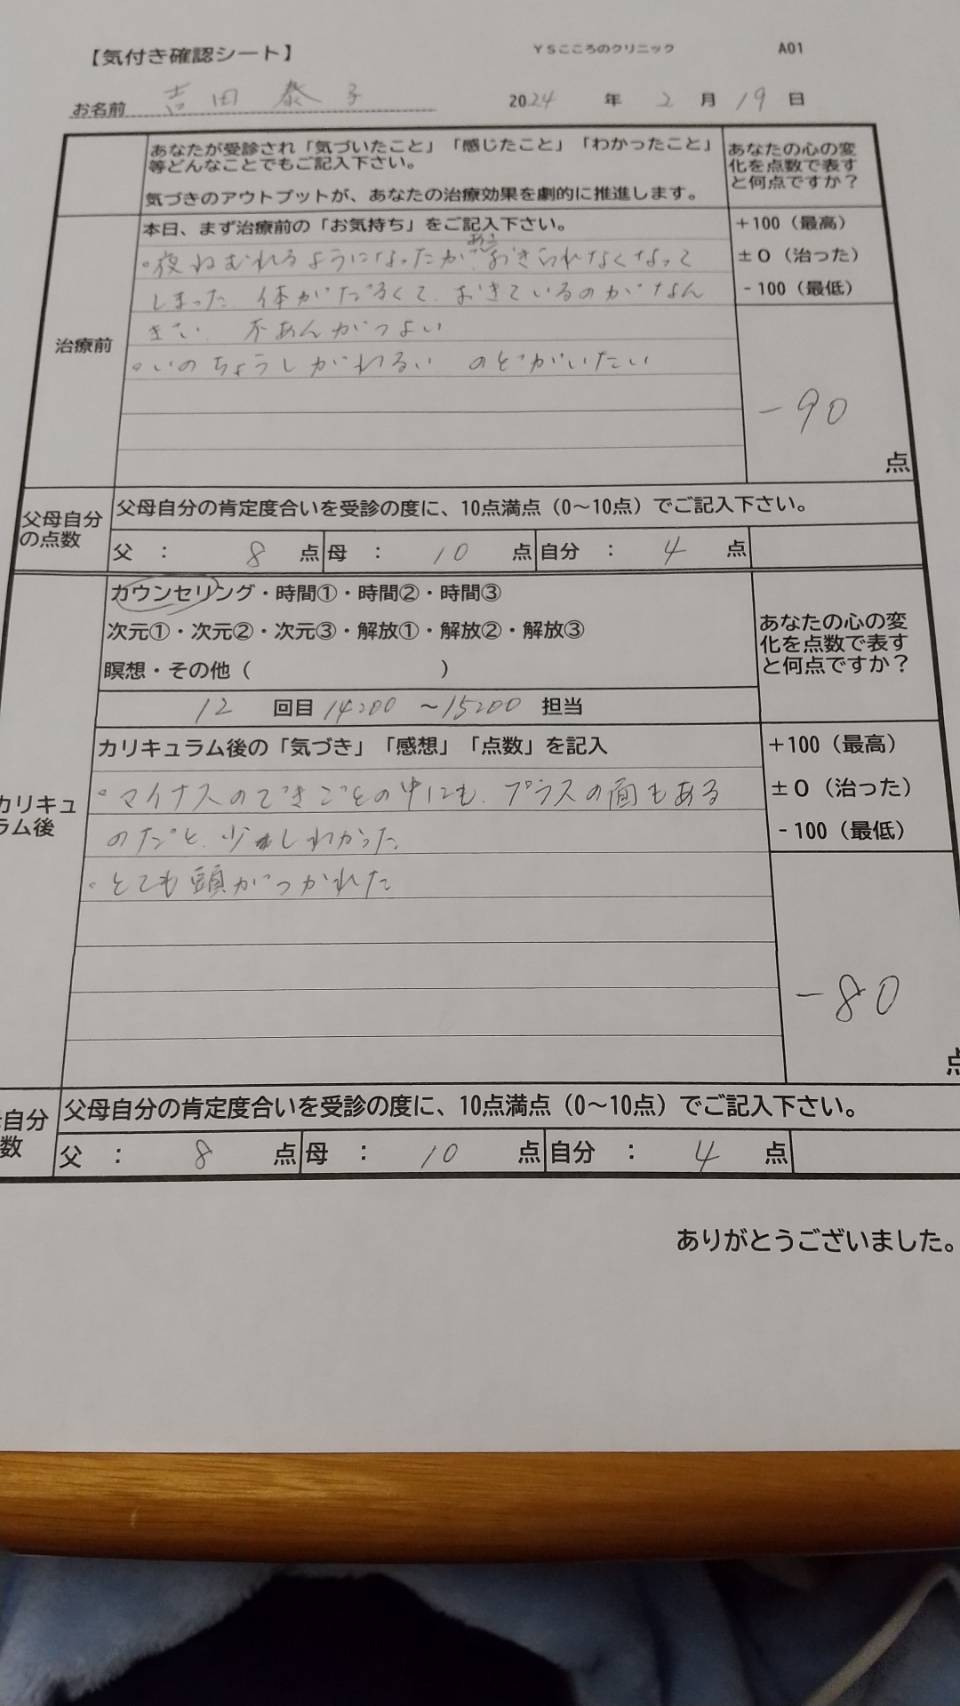 【気付き確認シート】 YSこころのクリニック A01
お名前 吉田 泰子 2024 年 2 月 19 日
あなたが受診され「気づいたこと」「感じたこと」「わかったこと」
等どんなことでもご記入下さい。
気づきのアウトプットが、あなたの治療効果を劇的に推進します。
あなたの心の変
化を点数で表す
と何点ですか？
治療前
本日、まず治療前の「お気持ち」をご記入下さい。
+100（最高）
±0（治った）
-100（最低）
あさ
・夜ねむれるようになったが、おきられなくなって
しまった。体がだるくて、おきているのがなん
ぎい 不あんがつよい
・いのちょうしがわるい のどがいたい
-90
点
父母自分
の点数
父母自分の肯定度合いを受診の度に、10点満点（0〜10点）でご記入下さい。
父 ： 8 点 母 ： 10 点 自分 ： 4 点
カリキュ
ラム後
カウンセリング・時間①・時間②・時間③
次元①・次元②・次元③・解放①・解放②・解放③
瞑想・その他（ ）
12 回目 14:00 〜15:00 担当
あなたの心の変
化を点数で表す
と何点ですか？
カリキュラム後の「気づき」「感想」「点数」を記入
+100（最高）
±0（治った）
-100（最低）
・マイナスのできごとの中にも、プラスの面もある
のだと、少しわかった
・とても頭がつかれた
-80
点
自分
数
父母自分の肯定度合いを受診の度に、10点満点（0〜10点）でご記入下さい。
父 ： 8 点 母 ： 10 点 自分 ： 4 点
ありがとうございました。